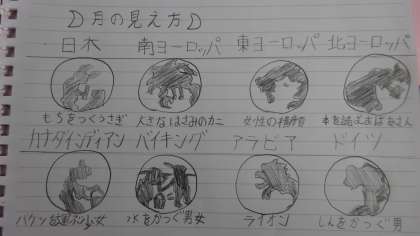 月の見え方
日本 南ヨーロッパ 東ヨーロッパ 北ヨーロッパ
もちをつくうさぎ 大きなはさみのカニ 女性の横顔 本を読むおばあさん
カナダインディアン バイキング アラビア ドイツ
バケツを運ぶ少女 水をかつぐ男女 ライオン しんをかつぐ男